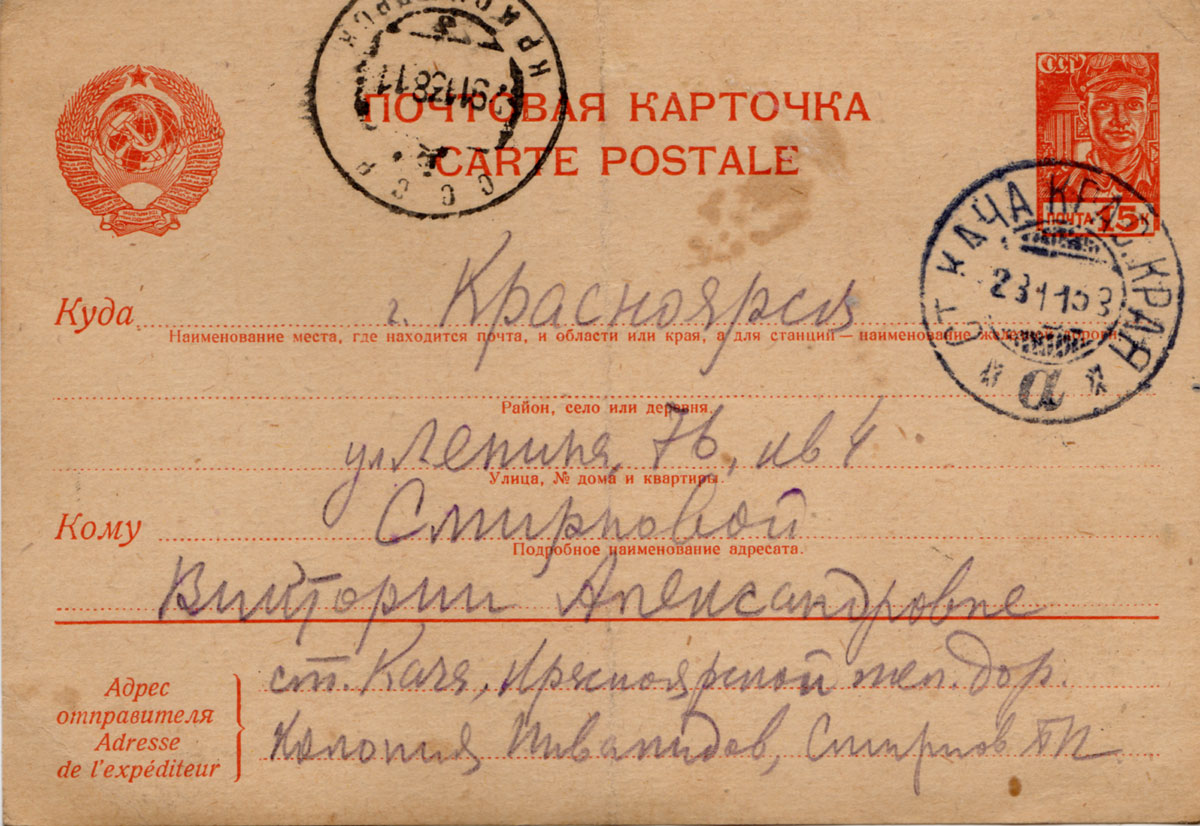 ПОЧТОВАЯ КАРТОЧКА
CARTE POSTALE
СССР
ПОЧТА 15 К
КРАСНОЯРСК
СССР
СТ КАЧА КРАС. КРАЯ
а
Куда г. Красноярск
Наименование места, где находится почта, и области или края, а для станций — наименование железной дороги.
Район, село или деревня.
ул Ленина, 76, кв 4
Улица, № дома и квартиры.
Кому Смирновой
Подробное наименование адресата.
Виктории Александровне
Адрес
отправителя
Adresse
de l'expéditeur
ст. Кача, Красноярской жел. дор.
Колония Инвалидов, Смирнов